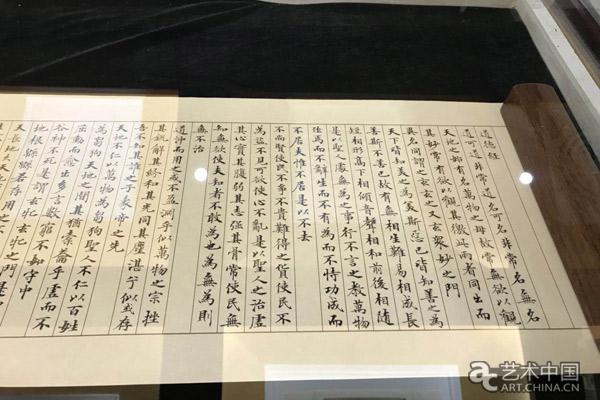 道德經
道可道非常道名可名非常名無名
天地之始有名萬物之母故常無欲以觀
其妙常有欲以觀其徼此兩者同出而
異名同謂之玄玄之又玄衆妙之門
天下皆知美之為美斯惡已皆知善之為
善斯不善已故有無相生難易相成長
短相形高下相傾音聲相和前後相隨
是以聖人處無為之事行不言之教萬物
作焉而不辭生而不有為而不恃功成而
不居夫惟不居是以不去
不尚賢使民不爭不貴難得之貨使民不
為盜不見可欲使心不亂是以聖人之治虛
其心實其腹弱其志强其骨常使民無
知無欲使夫知者不敢為也為無為則
無不治
道沖而用之或不盈淵乎似萬物之宗挫
其銳解其紛和其光同其塵湛兮似或存
吾不知其誰之子象帝之先
天地不仁以萬物為芻狗聖人不仁以百姓
為芻狗天地之間其猶橐籥乎虛而不
屈動而愈出多言數窮不如守中
谷神不死是謂玄牝玄牝之門是
地根綿綿若存用之不
天長地久天
艺术中国
ART.CHINA.CN